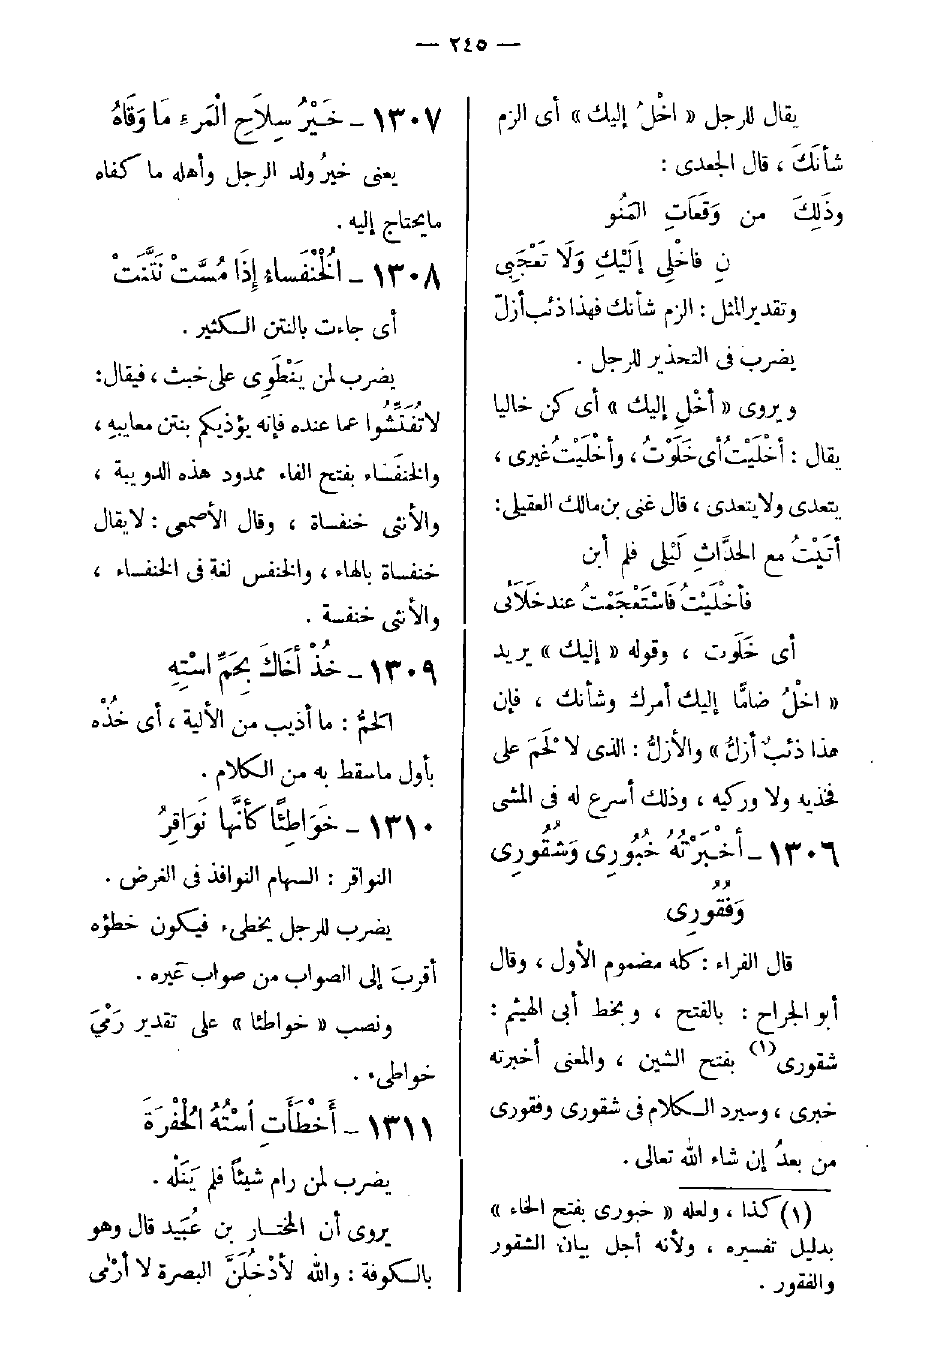 — ٢٤٥ —
يقال للرجل « اخْلُ إليك » أى الزم
شأنَكَ ، قال الجعدى :
وذَلِكَ من وَقَعَاتِ المَنُو
نِ فاخْلِى إلَيْكِ وَلَا تَعْجَبِى
وتقدير المثل : الزم شأنك فهذا ذئب أزلّ
يضرب فى التحذير للرجل .
ويروى « أخْلِ إليك » أى كن خاليا
يقال : أخْلَيْتُ أى خَلَوْتُ ، وأخْلَيْتُ غيرى ،
يتعدى ولا يتعدى ، قال غنى بن مالك العقيلى :
أتَيْتُ مع الحدَّاثِ لَيْلى فلم أبن
فأخْلَيْتُ فَاسْتَعْجَمْتُ عند خَلَائى
أى خَلَوت ، وقوله « إليك » يريد
« اخْلُ ضامًّا إليك أمرك وشأنك ، فإن
هذا ذئبٌ أزلُّ » والأزلُّ : الذى لا لَحْمَ على
فخذيه ولا وركيه ، وذلك أسرع له فى المشى
١٣٠٦ – أخْبَرْتُهُ خُبُورِى وَشُقُورِى
وَفُقُورِى
قال الفراء : كله مضموم الأول ، وقال
أبو الجراح : بالفتح ، وبخط أبى الهيثم :
شقورى (١) بفتح الشين ، والمعنى أخبرته
خبرى ، وسيرد الكلام فى شقورى وفقورى
من بعدُ إن شاء الله تعالى .
(١) كذا ، ولعله « خبورى بفتح الخاء »
بدليل تفسيره ، ولأنه أجل بيان الشقور
والفقور .
١٣٠٧ – خَيْرُ سِلَاحِ الْمَرءِ مَا وَقَاهُ
يعنى خيرُ ولد الرجل وأهله ما كفاه
ما يحتاج إليه .
١٣٠٨ – الْخُنْفَساء إِذَا مُسَّتْ نَتَّنَتْ
أى جاءت بالنتن الكثير .
يضرب لمن يَنْطَوِى على خبث ، فيقال :
لا تُفَتِّشُوا عما عنده فإنه يؤذيكم بنتن معايبه ،
والخنفَساء بفتح الفاء ممدود هذه الدويبة ،
والأنثى خنفساة ، وقال الأصمعى : لا يقال
خنفساة بالهاء ، والخنفس لغة فى الخنفساء ،
والأنثى خنفسة .
١٣٠٩ – خُذْ أخَاكَ بِحَمِّ اسْتِهِ
الحمُّ : ما أذيب من الألية ، أى خُذْه
بأول ما سقط به من الكلام .
١٣١٠ – خَوَاطِئًا كأنَّها نَوَاقِرُ
النواقر : السهام النوافذ فى الغرض .
يضرب للرجل يخطىء فيكون خطؤه
أقربَ إلى الصواب من صواب غيره .
ونصب « خواطئا » على تقدير رَمْيَ
خواطىء .
١٣١١ – أَخْطَأَتِ اُسْتُهُ الْحُفْرَةَ
يضرب لمن رام شيئاً فلم يَنَلْه .
يروى أن المختار بن عُبَيد قال وهو
بالكوفة : والله لأدْخُلَنَّ البصرة لا أرْمى